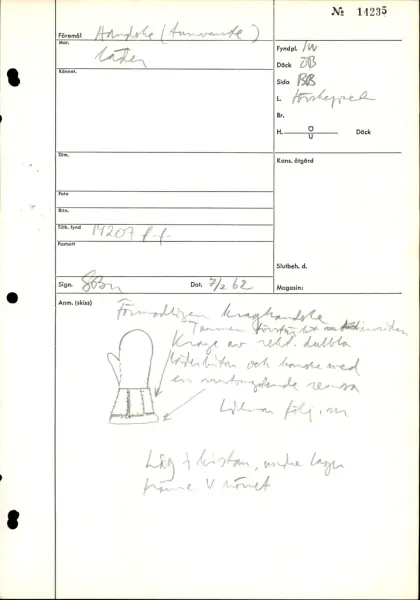 № 14235
Föremål Handske (tumvante)
Mat. Läder
Fyndpl. IW
Däck ÖB
Kännet.
Sida BB
L. Förskeppet
Br.
H. Ö U Däck
Dim.
Kons. åtgärd
Foto
Ritn.
Tillh. fynd 14207 f.f.
Fastsatt
Slutbeh. d.
Sign. Dat. 7/2 62
Magasin:
Anm. (skiss)
Förmodligen kraghandske
Tummen insidan
Krage av rekt. dubbla
läderbitar och kanske med
en remsa
Liknar följ. nr
Låg i kistan, undre lager
främre V hörnet